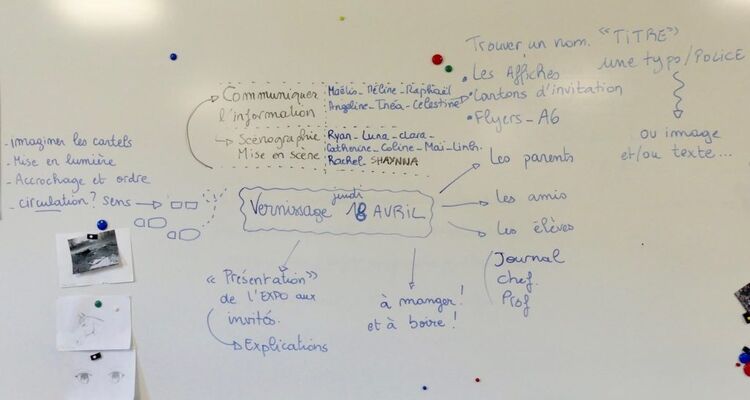 Trouver un nom. "TITRE"
une typo/POLICE
• Les Affiches
• Cartons d'invitation
• Flyers - A6
ou image
et/ou texte...
Communiquer
l'information
Maëlis - Méline - Raphaël
Angeline - Théa - Célestine
→ Scénographie
Mise en scène
Ryan - Luna - Clara -
Catherine - Coline - Mai-Linh.
Rachel SHAYNNA
- Imaginer les cartels
- Mise en lumière
- Accrochage et ordre
- circulation? sens →
jeudi
Vernissage 18 AVRIL
Les parents
Les amis
Les élèves
Journal
Chef.
Prof
« Présentation »
de l'EXPO aux
invités.
→ Explications
à manger!
et à boire!